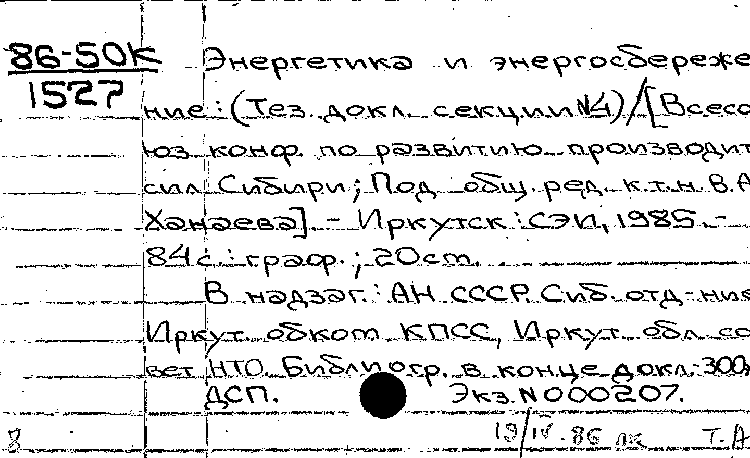 86-50К Энергетика и энергосбереже
1527
ние: (Тез. докл. секции №4) / [Всесо
юз конф. по развитию производит
сил Сибири; Под общ. ред. к.т.н. В.А
Ханаева]. - Иркутск: СЭИ, 1985. -
84с.: граф.; 20 см.
В надзаг.: АН СССР. Сиб. отд-ние
Иркут. обком КПСС, Иркут. обл. со
вет НТО. Библиогр. в конце докл. 300,
ДСП. Экз. N 000207.
8 19/IV-86 лк Т. А